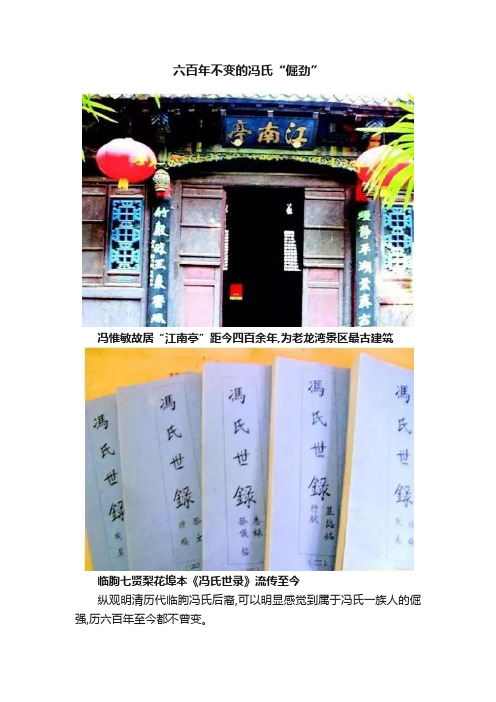 六百年不变的冯氏“倔劲”
江南亭
竹
静平湖
冯惟敏故居“江南亭”距今四百余年,为老龙湾景区最古建筑
馮氏世錄
馮氏世錄
馮氏世錄
馮氏世錄
墓誌銘
行狀
(二)
馮氏世錄
临朐七贤梨花埠本《冯氏世录》流传至今
纵观明清历代临朐冯氏后裔,可以明显感觉到属于冯氏一族人的倔
强,历六百年至今都不曾变。